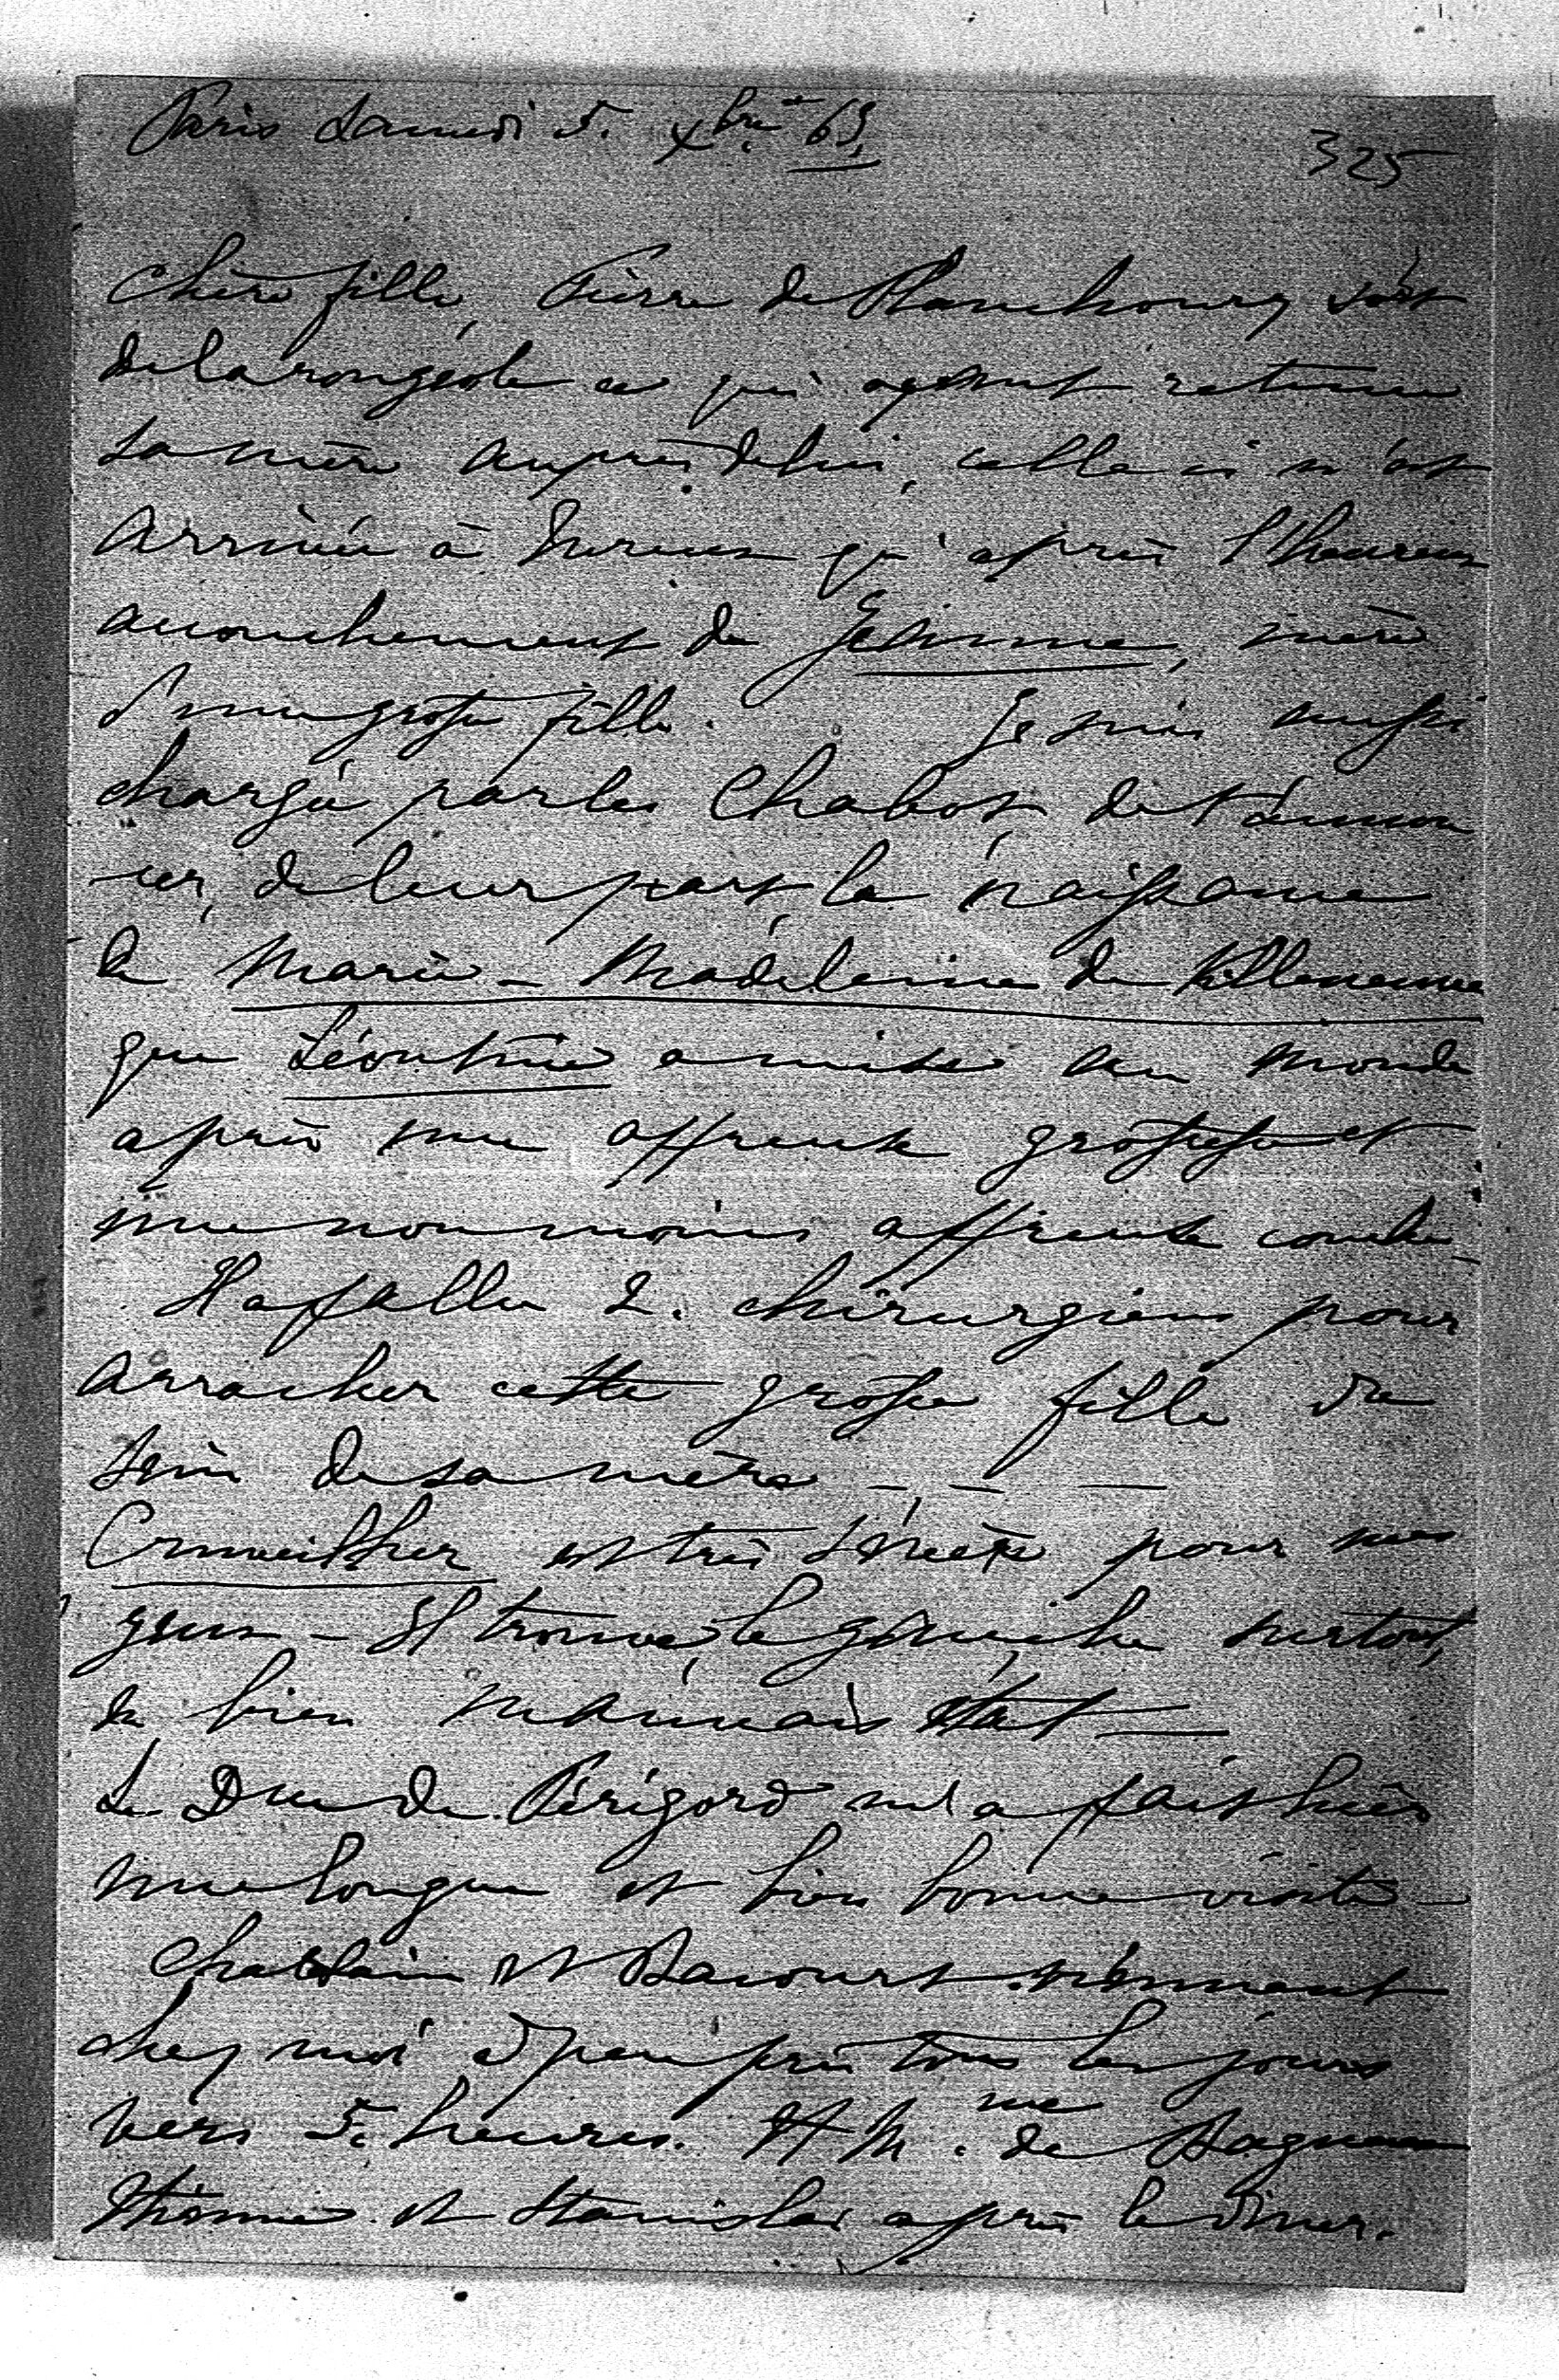 Paris Samedi 5. xbre 63,
325
Chère fille, Pierre de Planchoury sort
de la rougeole ce qui ayant retenue
sa mère auprès de lui, celle ci n'est
arrivée à qu'après l'heureux
accouchement de, mère
d'une grosse fille. Je suis aussi
chargée par les Chabot, de t'annon
-cer, de leur part, la naissance
de Marie-Madeleine de Villeneuve
que Léontine a mise au monde
après une affreuse grossesse et
une non moins affreuse couche_
Il a fallu 2. chirurgiens pour
arracher cette grosse fille du
sein de sa mère _ _ _
Cruveilher est très sévère pour mes
yeux _ Il trouve, le gauche surtout,
en bien mauvais état _
Le Duc de Périgord m'a fait hier
une longue et bien bonne visite _
et Bacourt viennent
chez moi à peu près tous les jours
vers 5. heures. Et Mme de
et Stanislas après le diner.